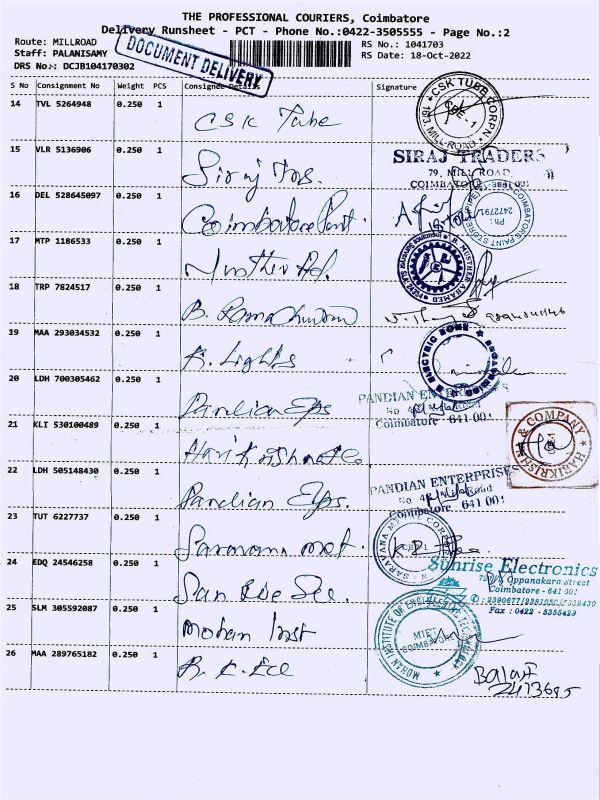 THE PROFESSIONAL COURIERS, Coimbatore
Delivery Runsheet - PCT - Phone No.:0422-3505555 - Page No.:2
Route: MILLROAD
Staff: PALANISAMY
DRS No.: DCJB104170302
DOCUMENT DELIVERY
RS No.: 1041703
RS Date: 18-Oct-2022
S No Consignment No Weight PCS Consignee Details Signature
14 TVL 5264948 0.250 1
CSK Tube
CSK TUBE CORPN
MILL ROAD
15 VLR 5136906 0.250 1
Siraj Trs.
SIRAJ TRADERS
79, MILL ROAD,
COIMBATORE
16 DEL 528645097 0.250 1
Coimbatore Paint
COIMBATORE PAINT STORE
Ph: 2472791
17 MTP 1186533 0.250 1
Musther Ad.
B. MUSTHER AHAMED
18 TRP 7824517 0.250 1
B.
19 MAA 293034532 0.250 1
R. Lights
ELECTRIC ZONE
20 LDH 700305462 0.250 1
Pandian Eps
PANDIAN ENTERPRISES
Coimbatore - 641 001
21 KLI 530100489 0.250 1
Harikrishna & Co
HARIKRISHNA & COMPANY
22 LDH 505148430 0.250 1
Pandian Eps.
PANDIAN ENTERPRISES
Coimbatore 641 001
23 TUT 6227737 0.250 1
Saravana met.
SARAVANA METAL CORPN
24 EDQ 24546258 0.250 1
Sunrise Electronics
Oppanakara Street
Coimbatore - 641 001
Fax : 0422 - 5358429
25 SLM 305592087 0.250 1
Mohan Inst
MOHAN INSTITUTE OF ENGINEERING TECHNOLOGY
MIET
COIMBATORE
26 MAA 289765182 0.250 1
R. K. Ece
Balaji
2473695